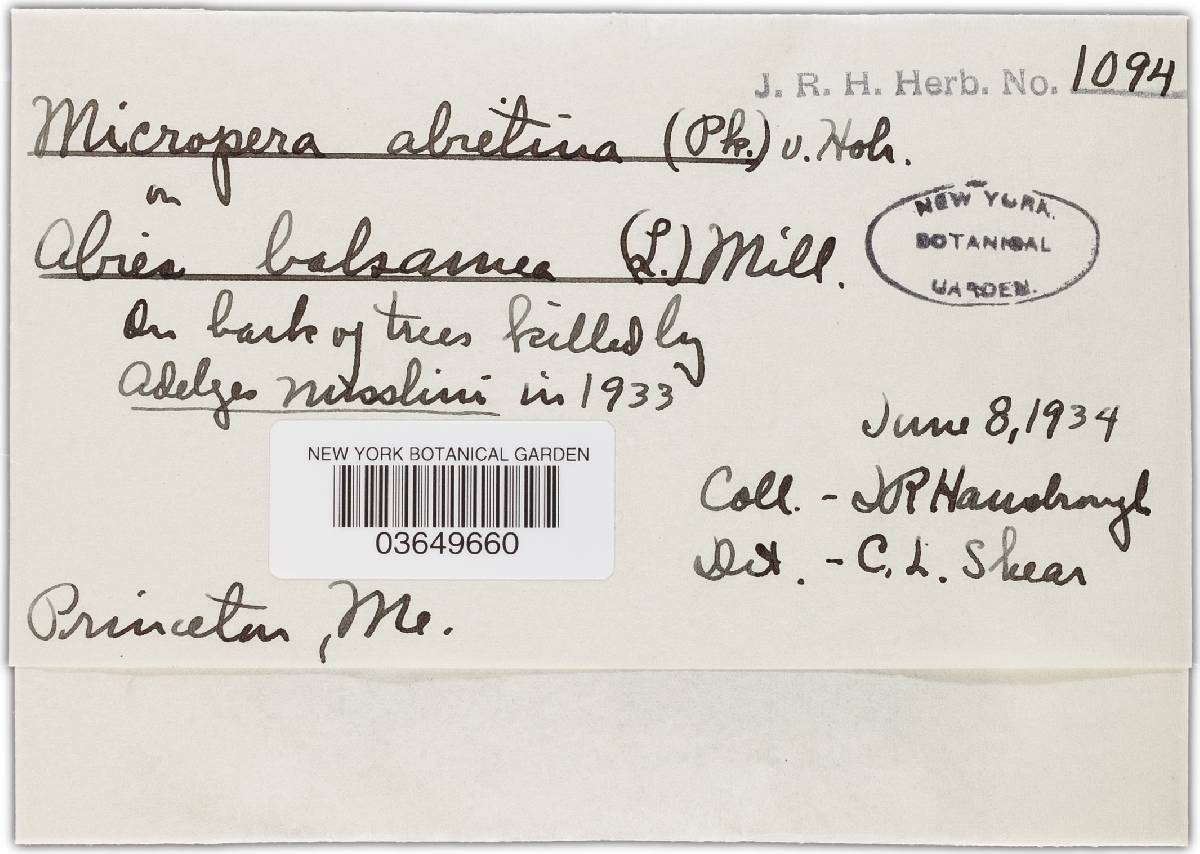 J. R. H. Herb. No. 1094
Micropera abietina (Pk.) v. Hoh.
on
Abies balsamea (L.) Mill.
NEW YORK
BOTANICAL
GARDEN.
On bark of trees killed by
Adelges nusslini in 1933
June 8, 1934
NEW YORK BOTANICAL GARDEN
03649660
Coll. - J R Hansbrough
Det. - C. L. Shear
Princeton, Me.